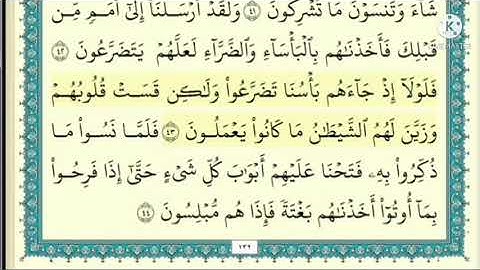 شَآءَ وَتَنسَوْنَ مَا تُشْرِكُونَ ٤١ وَلَقَدْ أَرْسَلْنَآ إِلَىٰٓ أُمَمٍ مِّن
قَبْلِكَ فَأَخَذْنَٰهُم بِٱلْبَأْسَآءِ وَٱلضَّرَّآءِ لَعَلَّهُمْ يَتَضَرَّعُونَ ٤٢
فَلَوْلَآ إِذْ جَآءَهُم بَأْسُنَا تَضَرَّعُوا۟ وَلَٰكِن قَسَتْ قُلُوبُهُمْ
وَزَيَّنَ لَهُمُ ٱلشَّيْطَٰنُ مَا كَانُوا۟ يَعْمَلُونَ ٤٣ فَلَمَّا نَسُوا۟ مَا
ذُكِّرُوا۟ بِهِۦ فَتَحْنَا عَلَيْهِمْ أَبْوَٰبَ كُلِّ شَىْءٍ حَتَّىٰٓ إِذَا فَرِحُوا۟
بِمَآ أُوتُوٓا۟ أَخَذْنَٰهُم بَغْتَةً فَإِذَا هُم مُّبْلِسُونَ ٤٤
١٣٢